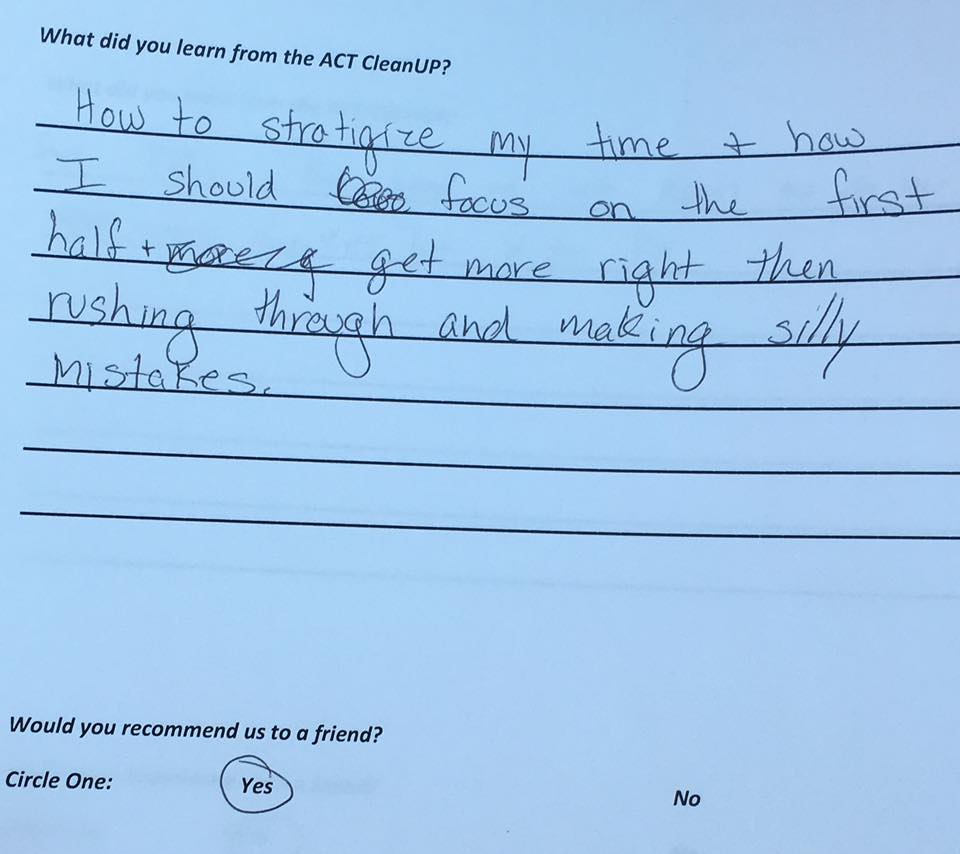 What did you learn from the ACT CleanUP?
How to stratigize my time + how
I should focus on the first
half + get more right then
rushing through and making silly
mistakes.
Would you recommend us to a friend?
Circle One: Yes No